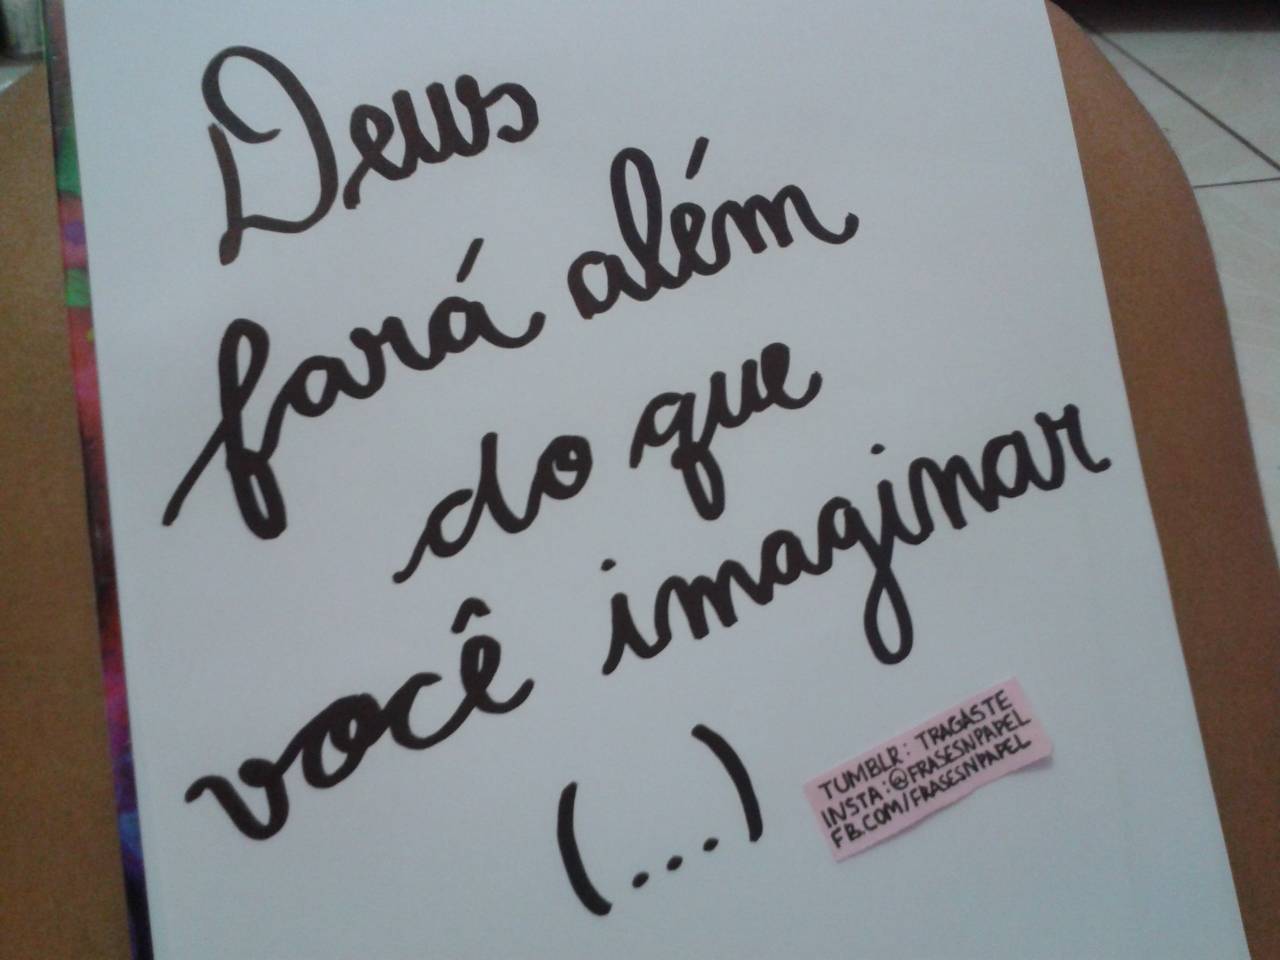 Deus
fará além
do que
você imaginar
(...)
TUMBLR: TRAGASTE
INSTA:@FRASESNPAPEL
FB.COM/FRASESNPAPEL